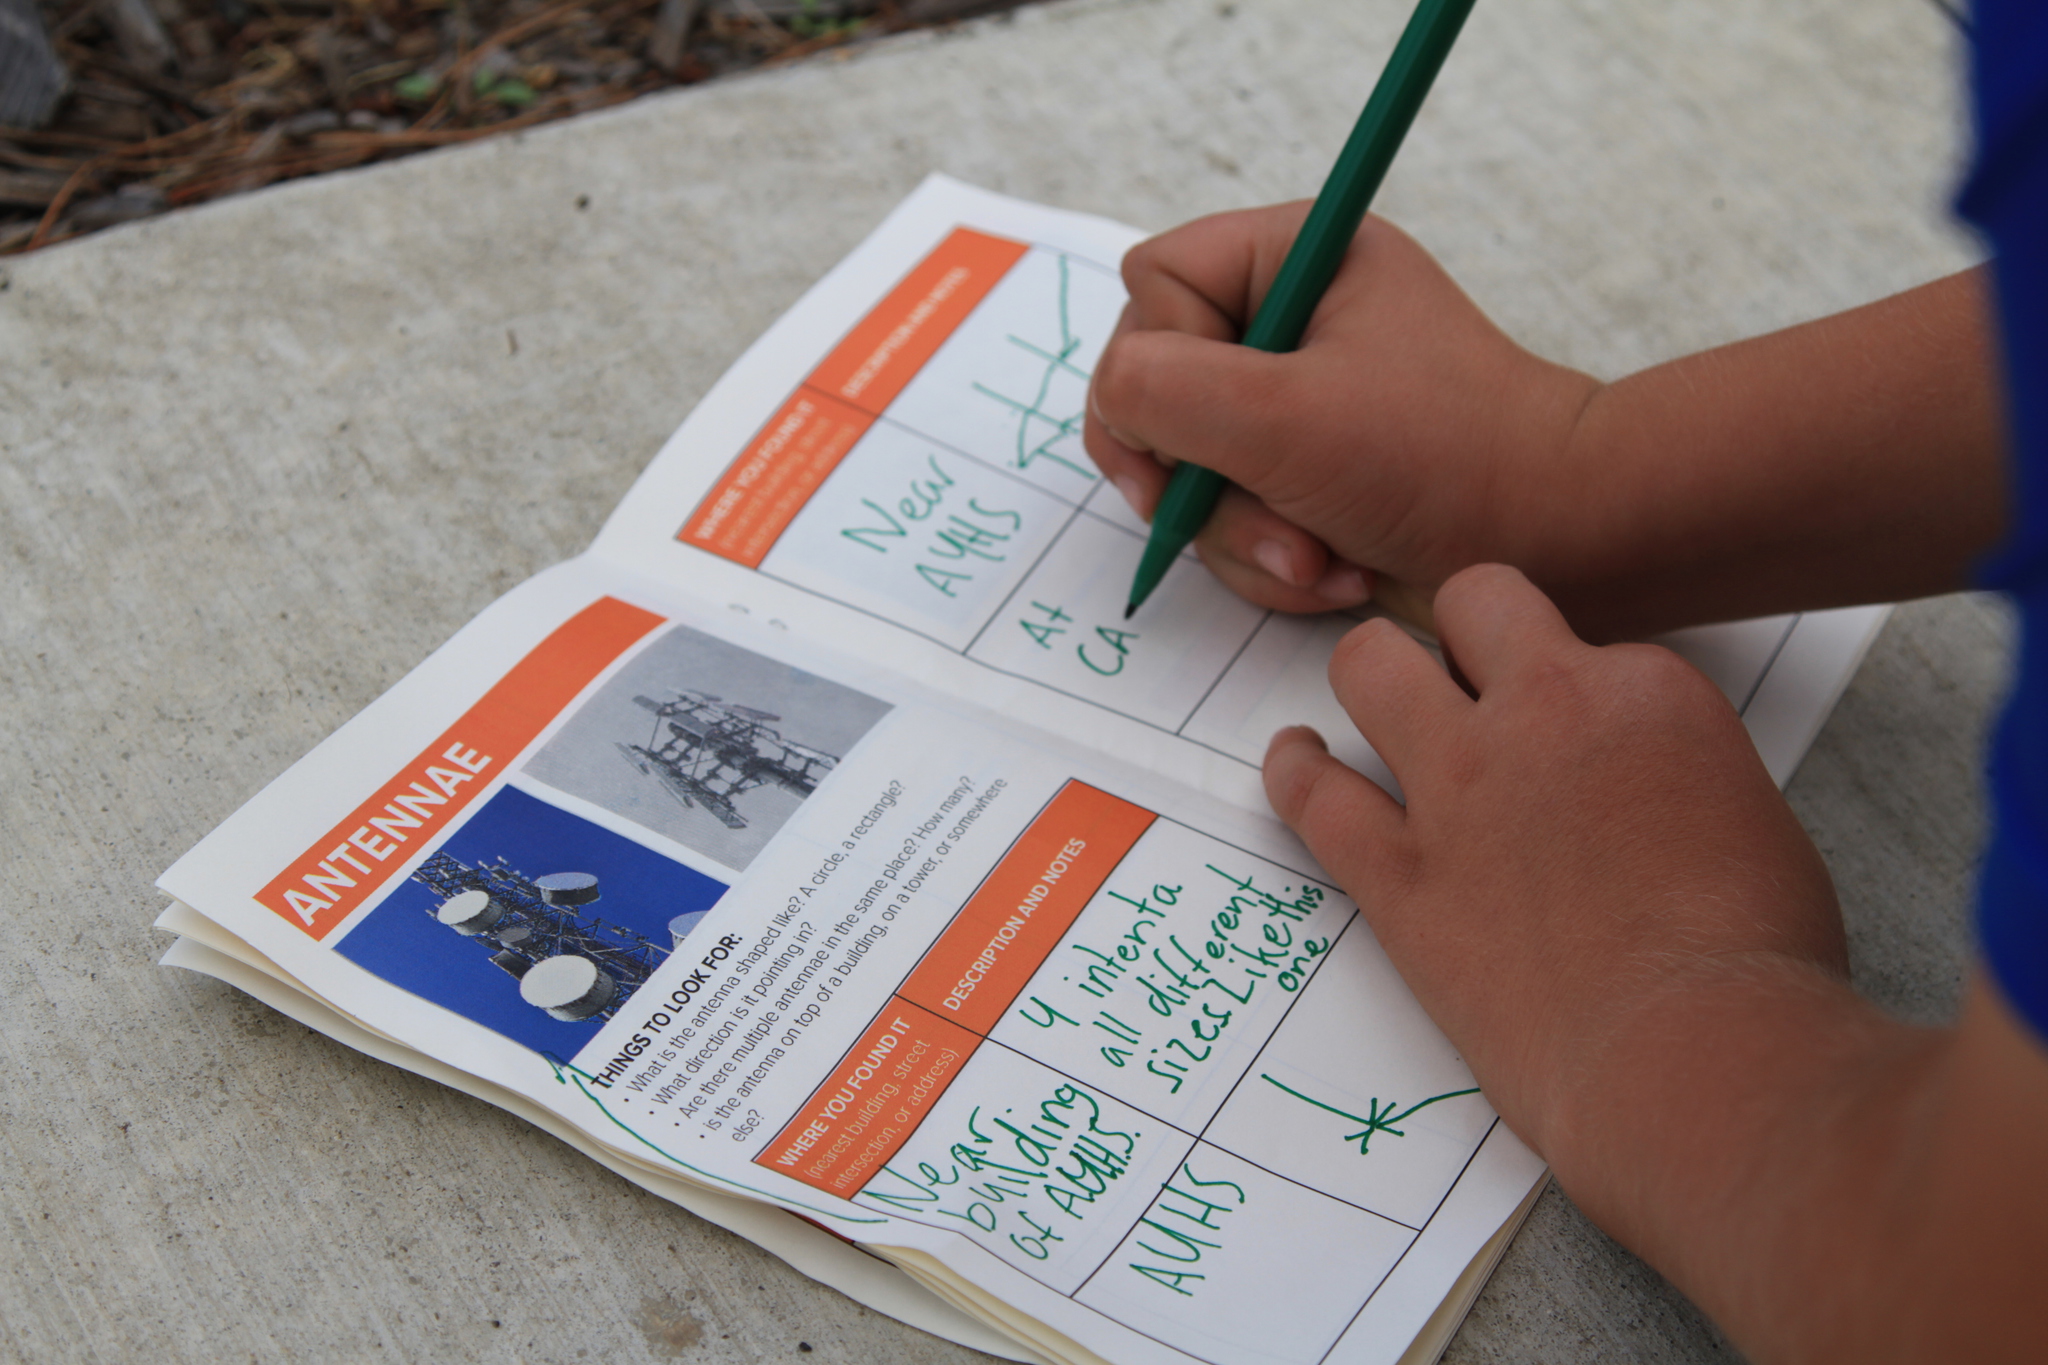 ANTENNAE
THINGS TO LOOK FOR:
• What is the antenna shaped like? A circle, a rectangle?
• What direction is it pointing in?
• Are there multiple antennae in the same place? How many?
• is the antenna on top of a building, on a tower, or somewhere
else?
WHERE YOU FOUND IT
(nearest building, street
intersection, or address)
DESCRIPTION AND NOTES
Near
building
of AYHS.
4 intenta
all different
sizes Like this
one
AYHS
WHERE YOU FOUND IT
(nearest building, street
intersection, or address)
DESCRIPTION AND NOTES
Near
AYHS
At
CA